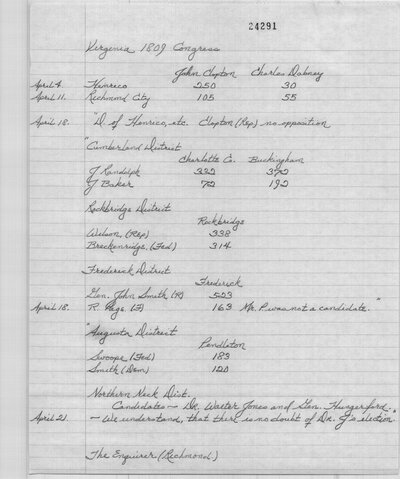 24291
Virginia 1809 Congress
John Clopton Charles Dabney
April 4. Henrico 250 30
April 11. Richmond City 105 55
April 18. "D. of Henrico, etc. Clopton (Rep) no opposition
"Cumberland District
Charlotte C. Buckingham
J Randolph 332 372
J Baker 72 192
Rockbridge District
Rockbridge
Wilson, (Rep) 338
Breckenridge, (Fed) 314
Frederick District
Frederick
Gen. John Smith (R) 523
April 18. R. Page (F) 163 Mr. P. was not a candidate."
"Augusta District
Pendleton
Swoope (Fed) 183
Smith (Dem) 120
Northern Neck Dist.
Candidates — Dr. Walter Jones and Gen. Hungerford.
April 21. — We understand, that there is no doubt of Dr. J's election."
The Enquirer (Richmond)